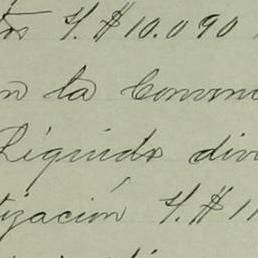 tos $/.#10.090
n la Conven
Líquido div
tización $/.#1